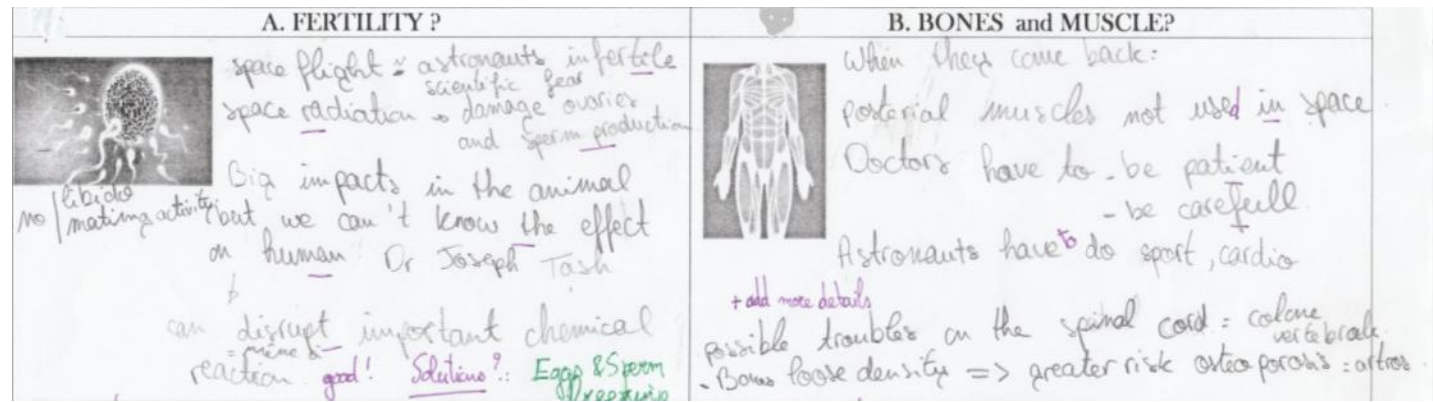 A. FERTILITY ?
space flight = astronauts infertile
scientific fear
space radiation → damage ovaries
and sperm production
Big impacts in the animal
no libido
mating activity
but we can't know the effect
on human Dr Joseph Tash
can disrupt important chemical
reaction
good! Solutions?: Eggs & Sperm
freezing
B. BONES and MUSCLE?
When they come back:
posterial muscles not used in space
Doctors have to - be patient
- be carefull
Astronauts have to do sport, cardio
+ add more details
possible troubles on the spinal cord = colone
vertebrale
- Bones loose density => greater risk osteoporosis = artros